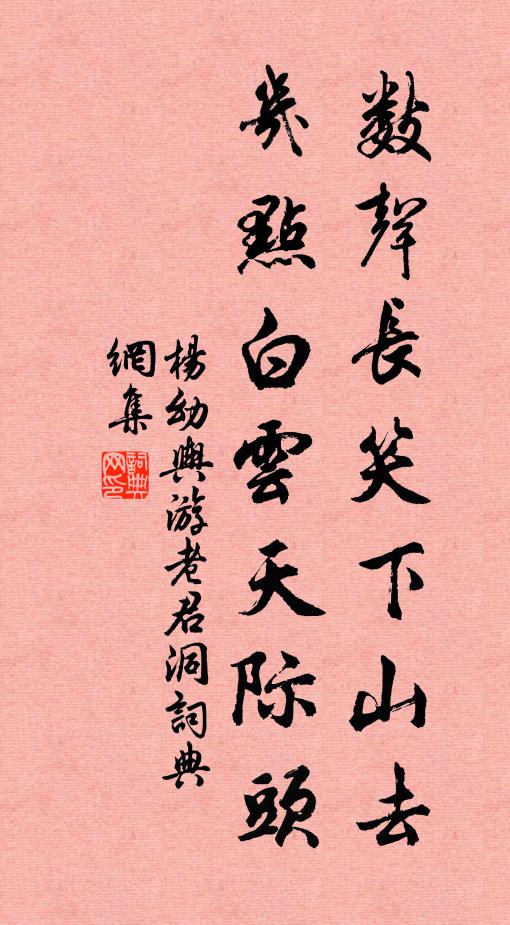 數聲長笑下山去
幾點白雲天际頭
楊幼輿游老君洞詞典
網集
詞典网印